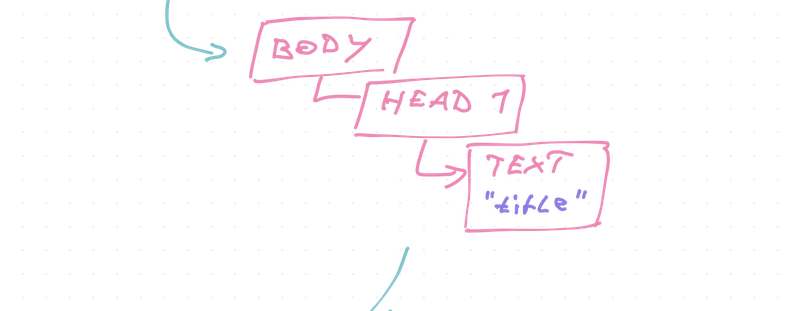 BODY
HEAD 1
TEXT
"title"